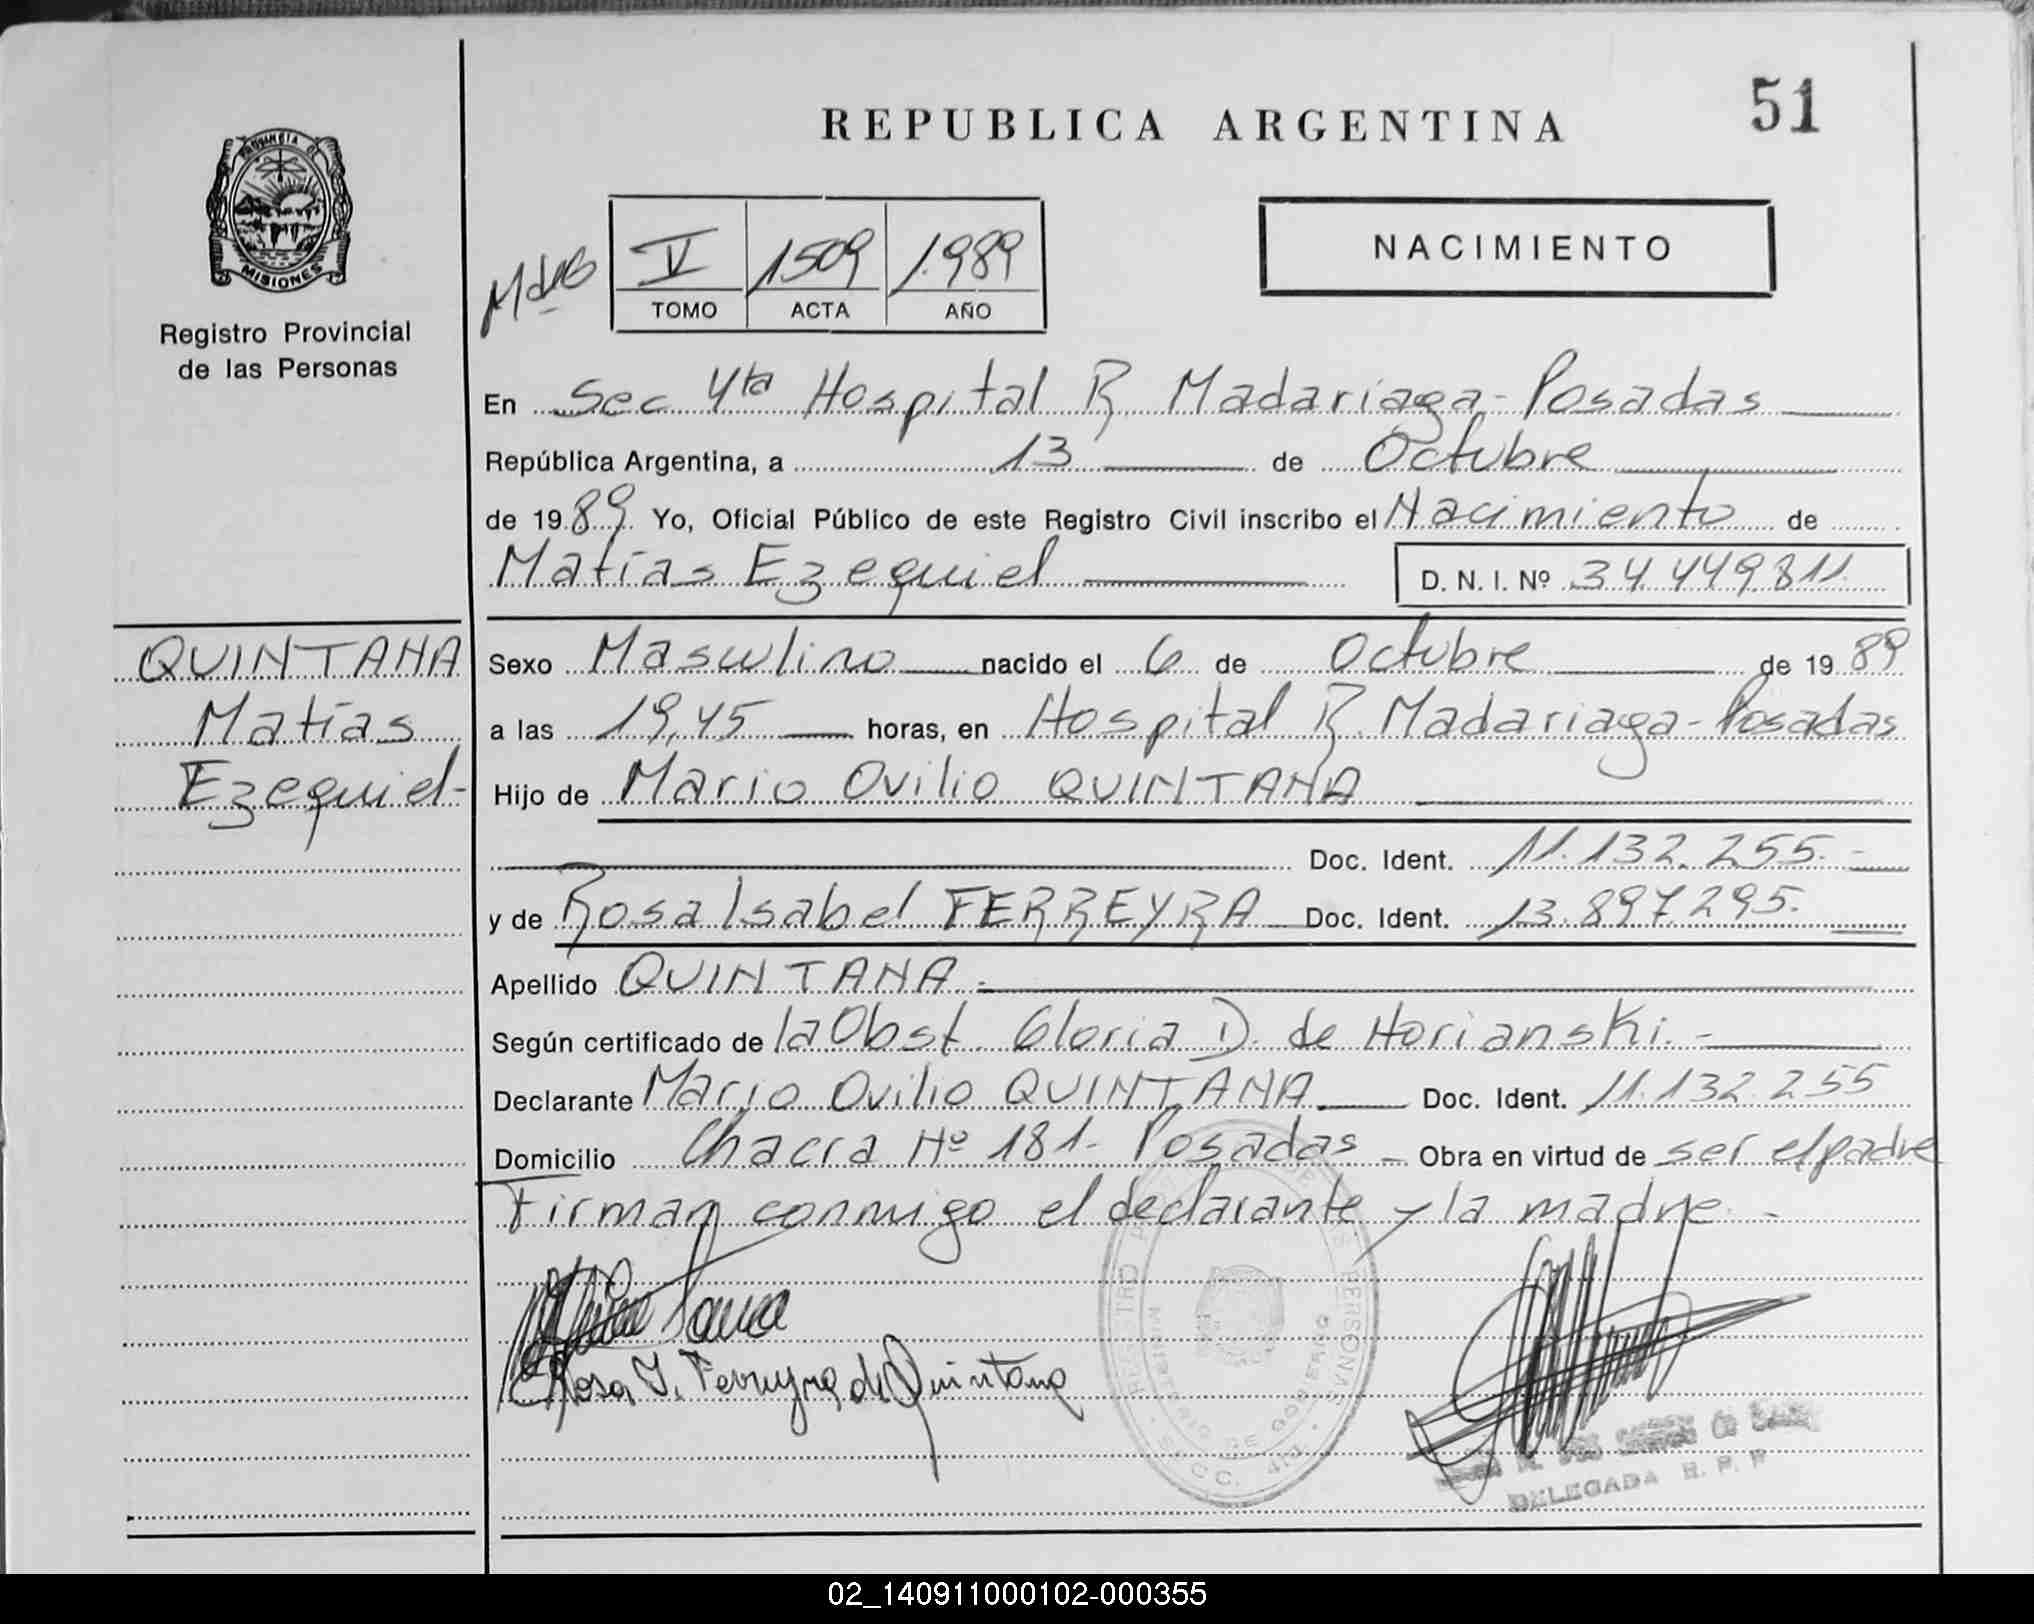 51
REPUBLICA ARGENTINA
PROVINCIA DE
MISIONES
Registro Provincial
de las Personas
V 1509 1.989
TOMO ACTA AÑO
NACIMIENTO
En Sec 4ta Hospital R. Madariaga - Posadas
República Argentina, a 13 de Octubre
de 1989. Yo, Oficial Público de este Registro Civil inscribo el Nacimiento de
Matías Ezequiel D. N. I. Nº 34.449.811
QUINTANA
Matías
Ezequiel-
Sexo Masculino nacido el 6 de Octubre de 1989
a las 19,45 horas, en Hospital R. Madariaga - Posadas
Hijo de Mario Ovilio QUINTANA
Doc. Ident. 11.132.255.-
y de Rosa Isabel FERREYRA Doc. Ident. 13.897.295.
Apellido QUINTANA.-
Según certificado de la Obst. Gloria D. de Horianski.-
Declarante Mario Ovilio QUINTANA Doc. Ident. 11.132.255
Domicilio Chacra Nº 181- Posadas - Obra en virtud de ser el padre
Firman conmigo el declarante y la madre.-
Rosa I. Ferreyra de Quintana
DELEGADA R. P. P
02_140911000102-000355